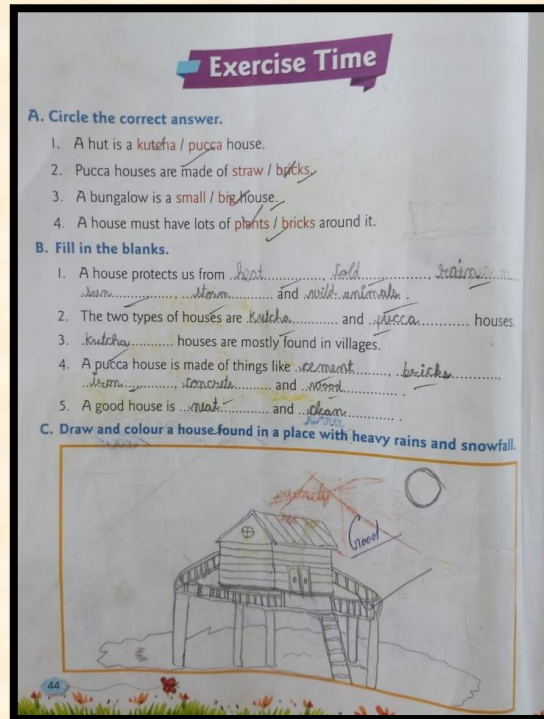 Exercise Time
A. Circle the correct answer.
1. A hut is a kutcha / pucca house.
2. Pucca houses are made of straw / bricks.
3. A bungalow is a small / big house.
4. A house must have lots of plants / bricks around it.
B. Fill in the blanks.
1. A house protects us from heat, cold, rain
sun storm and wild animals.
2. The two types of houses are kutcha and pucca houses.
3. kutcha houses are mostly found in villages.
4. A pucca house is made of things like cement, bricks
iron, concrete and wood.
5. A good house is neat and clean.
C. Draw and colour a house found in a place with heavy rains and snowfall.
Good
44